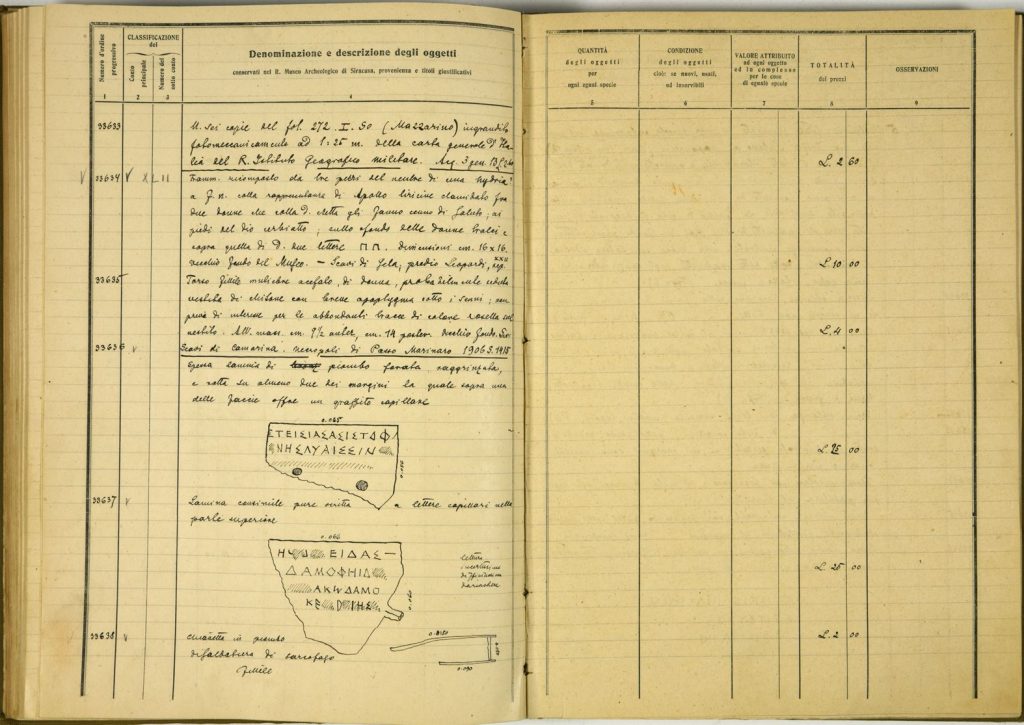 Numero d'ordine progressivo
CLASSIFICAZIONE del
Conto principale
Numero del sotto conto
Denominazione e descrizione degli oggetti
conservati nel R. Museo Archeologico di Siracusa, provenienza e titoli giustificativi
1 2 3 4
QUANTITÀ degli oggetti per ogni specie
CONDIZIONE degli oggetti cioè: se nuovi, usati, od inservibili
VALORE ATTRIBUITO ad ogni oggetto od in complesso per le cose di eguale specie
TOTALITÀ dei prezzi
OSSERVAZIONI
5 6 7 8 9
33633
N. sei copie del fol. 272. I. SO (Mazzarino) ingrandito
fotomeccanicamente ad 1:25 m. della carta generale d'Ita
lia del R. Istituto Geografico militare.
L. 2 60
V 33634 V XLII
Framm. ricomposto da tre pezzi del ventre di una hydria?
a f. n. colla rappresentanza di Apollo liricine clamidato fra
due donne che colla d. eretta gli fanno cenno di saluto; ai
piedi del dio cerbiatto; sullo sfondo delle donne tralci e
sopra quella di D. due lettere ΠΠ. dimensioni cm. 16 x 16.
vecchio fondo del Museo. — Scavi di Gela, predio Leopardi, sep. XXII
L. 10 00
33635
Torso fittile muliebre acefalo, di donna, probabilmente seduta
vestita di chitone con breve apoptygma sotto i seni; non
privo di interesse per le abbondanti tracce di colore rosella sul
vestito. Alt. mass. cm. 9½ anter, cm. 14 poster. Vecchio fondo.
L. 4 00
33636 V
Scavi di Camarina. necropoli di Passo Marinaro 1906 S. 1415
Spessa lamina di piombo forata raggrinzata,
e rotta su almeno due dei margini la quale sopra una
delle faccie offre un graffito capillare
0.085
ΣΤΕΙΣΙΑΣΑΣΙΣΤΟΦ
ΝΗΣΛΥΑΙΣΣΙΝ
L. 25 00
33637 V
Lamina consimile pure scritta a lettere capillari nella
parte superiore
0.066
ΕΙΔΑΣ—
ΔΑΜΟΦΗΙΔ
ΑΚΙΝΔΑΜΟ
0.060
L. 25 00
33638 V
chiavetta in piombo
di saldatura di sarcofago
fittile
0.090
L. 2 00